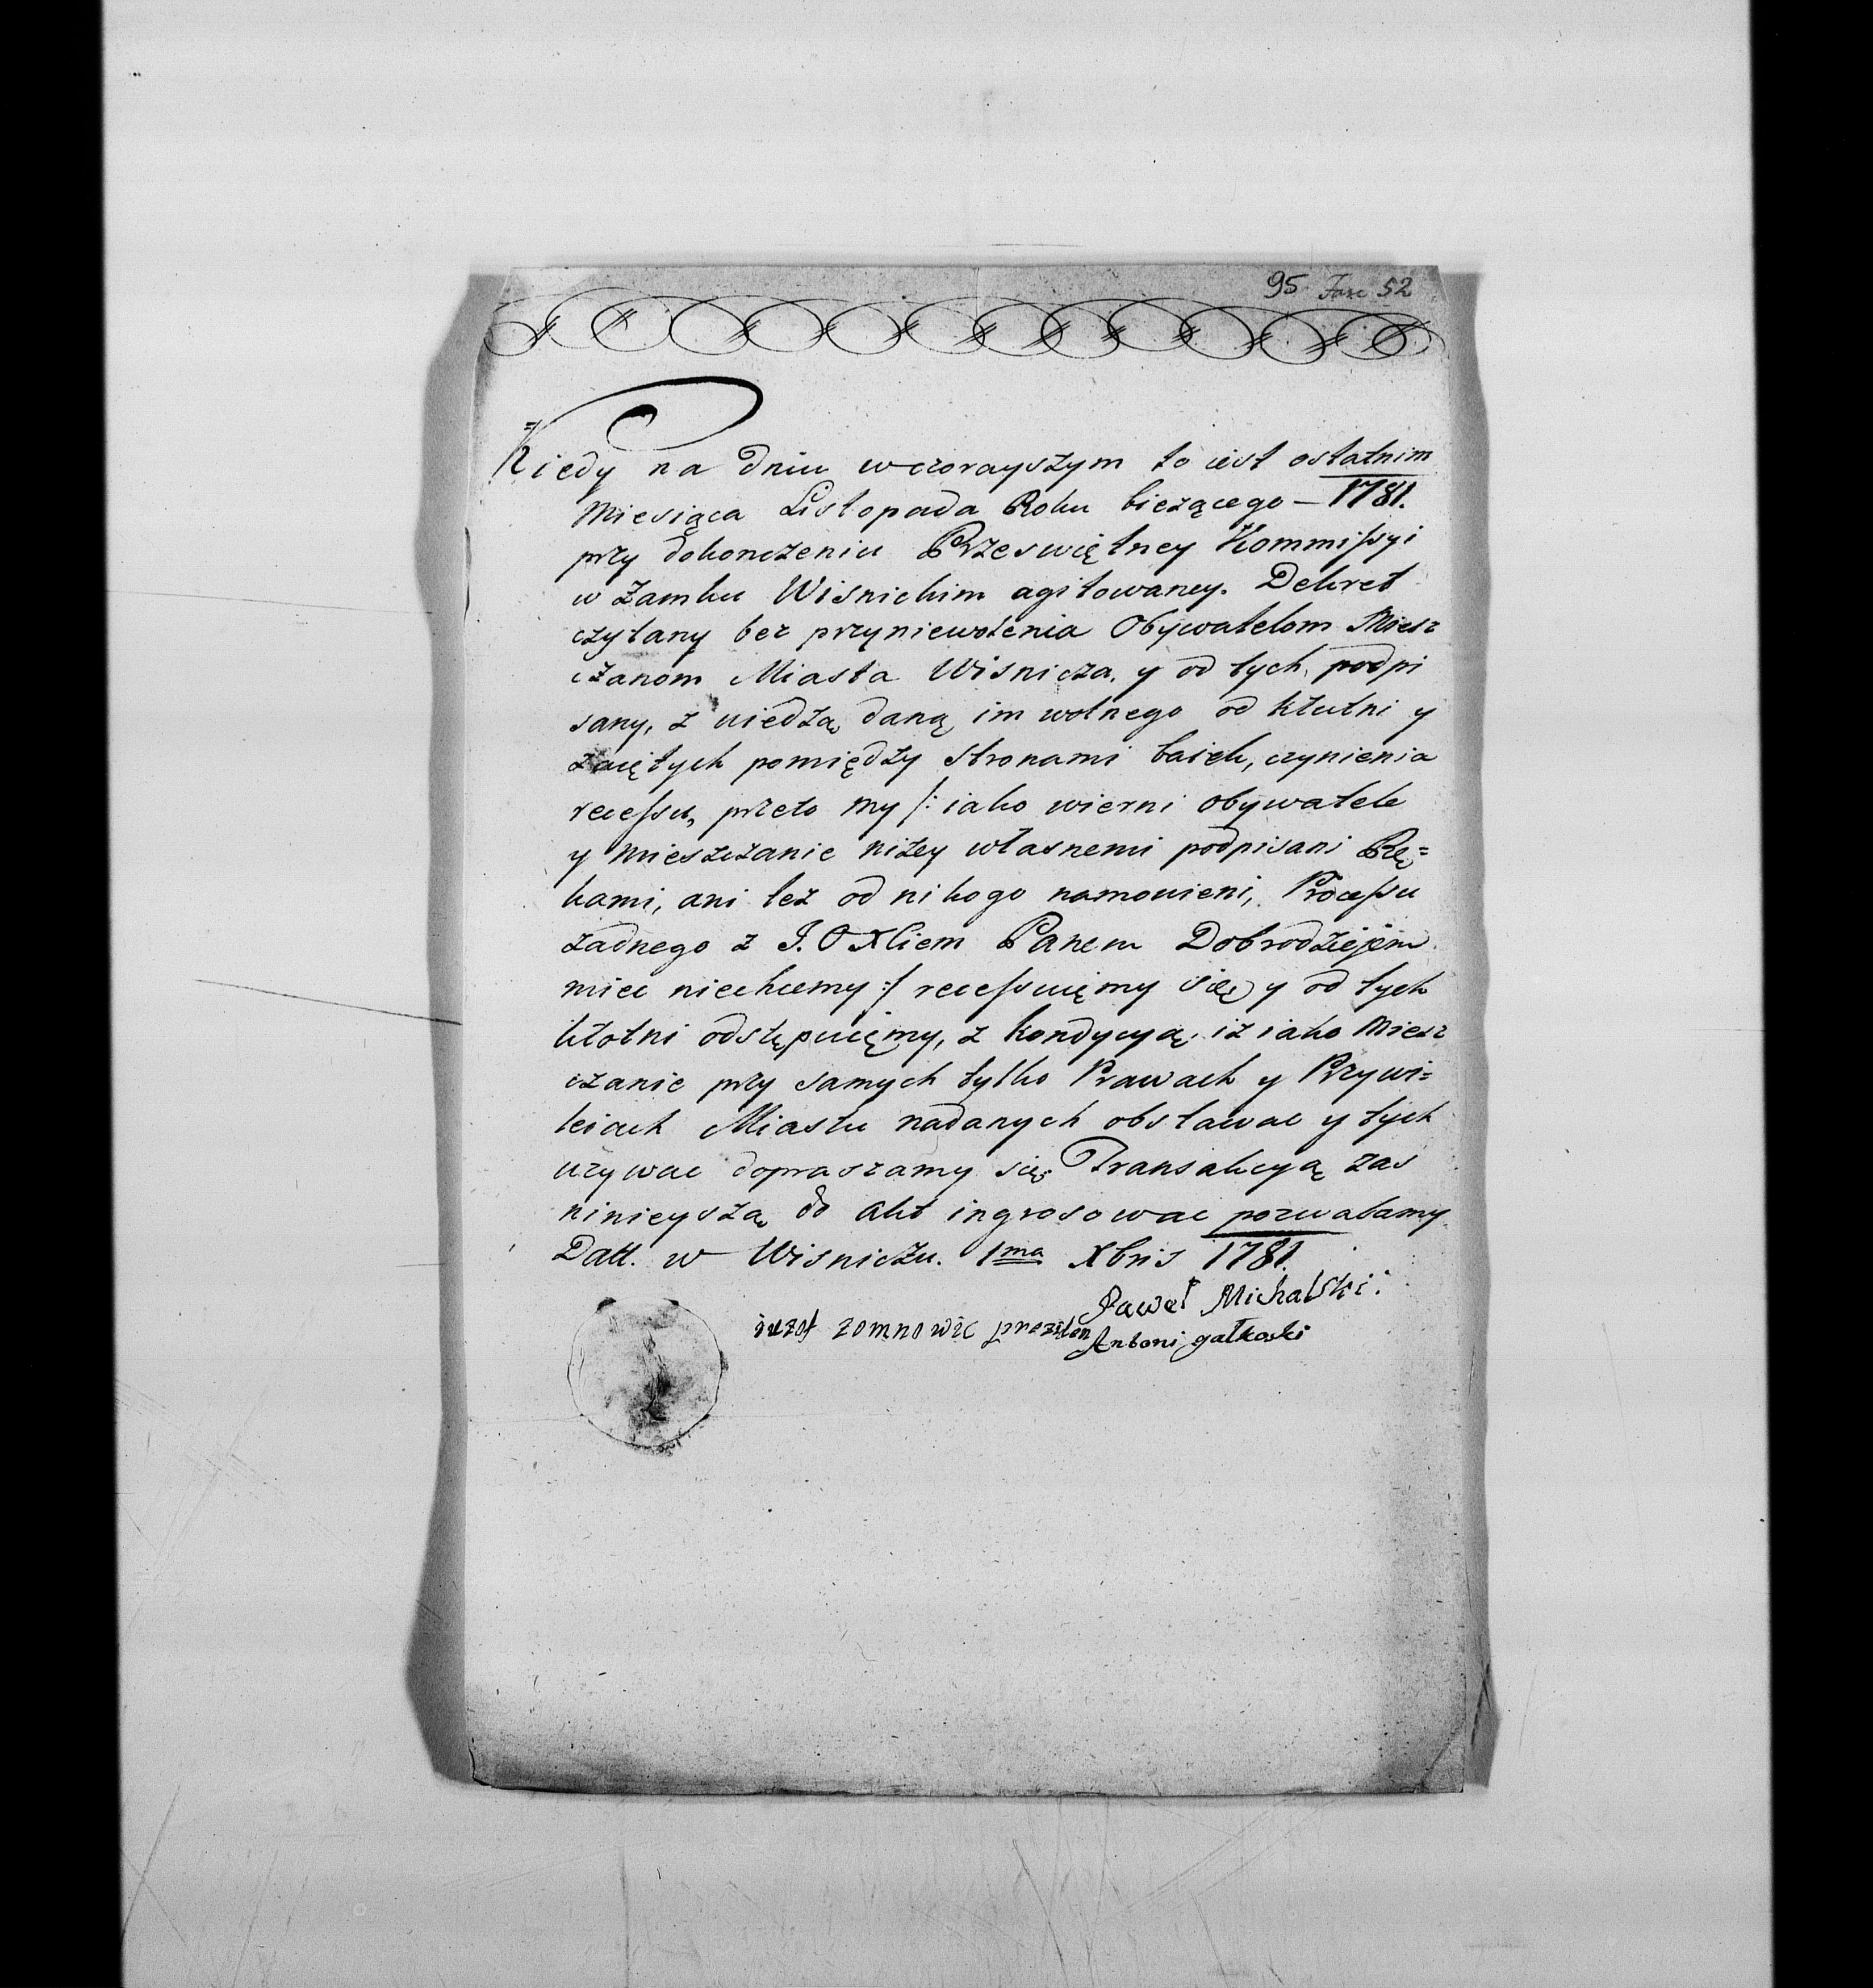 95 Fasc 52
Kiedy na dniu wczorayszym to iest ostatnim
Miesiąca Listopada Roku bieżącego — 1781.
przy dokonczeniu Przeswiętney Kommissyi
w Zamku Wisnickim agitowaney. Dekret
czytany bez przyniewolenia Obywatelom Miesz
czanom Miasta Wisnicza. y od tych podpi
sany, z wiedzą daną im wolnego od kłutni y
zaiętych pomiędzy stronami baiek, czynienia
recessu, przeto my /: iako wierni obywatele
y mieszczanie niżey własnemi podpisani Rę=
kami, ani też od nikogo namowieni, Processu
żadnego z J. O Xciem Panem Dobrodziejem
miec niechcemy :/ recessuięmy się y od tych
kłotni odstępuięmy, z kondycyą iż iako Miesz
czanie przy samych tylko Prawach y Przywi=
leiach Miastu nadanych obstawac y tych
uzywac dopraszamy się Transakcyą zas
ninieyszą do akt ingrosowac pozwalamy
Datt. w Wisniczu. 1ma Xbris 1781.
Paweł Michalski.
iuzof zomnowic preziden
Antoni gałkoski